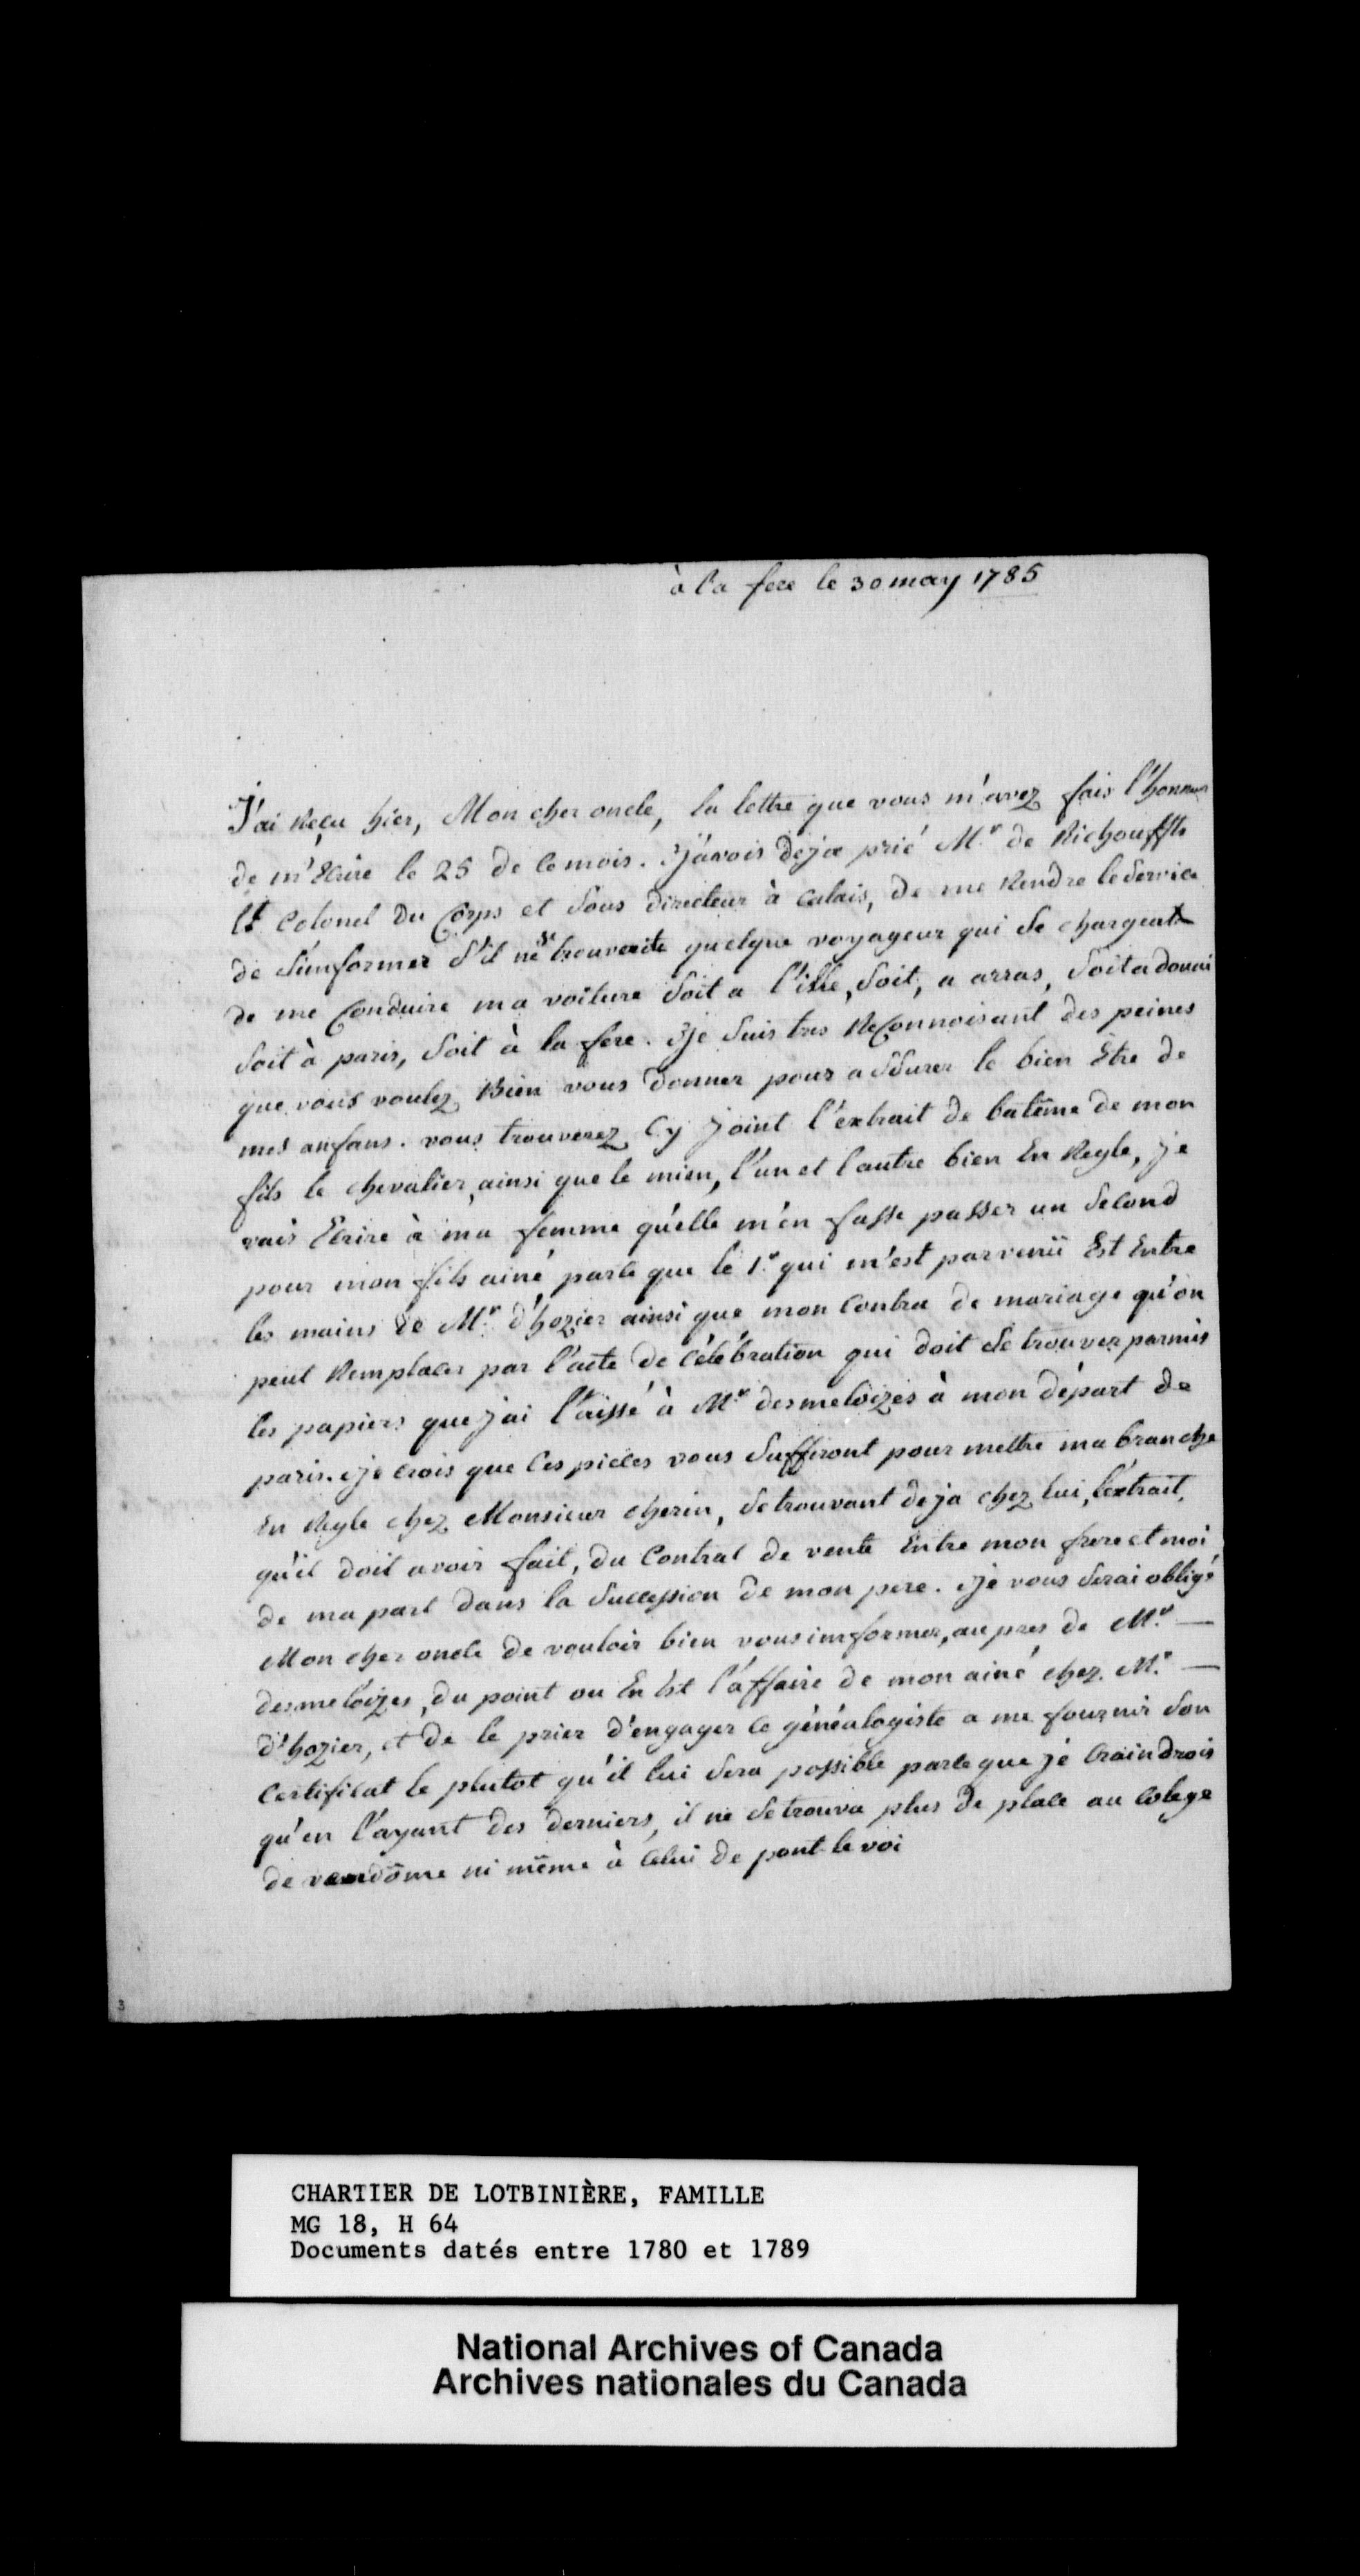 à la fere le 30 may 1785
J'ai Reçu hier, Mon cher oncle, la lettre que vous m'avez fais l'honneur
de m'Ecrire le 25 de ce mois. J'avois deja prié Mr. de Richouffts
Lt Colonel du Corps et sous directeur à calais, de me Rendre le service
de s'imformer s'il ne se trouveroite quelque voyageur qui se chargeat
de me Conduire ma voiture soit a l'ille, soit, a arras, soit a douai
soit à paris, soit à la fere. Je suis tres ReConnoisant des peines
que vous voulez Bien vous donner pour assurer le bien Etre de
mes anfans. vous trouverez Cy joint l'extrait de batême de mon
fils le chevalier, ainsi que le mien, l'un et l'autre bien En Regle, je
vais Ecrire à ma femme qu'elle m'en fasse passer un second
pour mon fils ainé parce que le 1.r qui m'est parvenü Est Entre
les mains de Mr. d'hozier ainsi que mon Contra de mariage qu'on
peut Remplacer par l'acte de célébration qui doit se trouver parmis
les papiers que j'ai l'aissé à Mr. desmeloizes à mon départ de
paris. je crois que ces pieces vous suffiront pour mettre ma branche
En Regle chez Monsieur cherin, se trouvant deja chez lui, l'extrait,
qu'il doit avoir fait, du Contrat de vente Entre mon frere et moi
de ma part dans la succession de mon pere. Je vous serai obligé
Mon cher oncle de vouloir bien vous imformer, au pres de Mr. —
desmeloizes, du point ou En Est l'affaire de mon ainé chez Mr. —
d'hozier, et de le prier d'engager ce généalogiste a me fournir son
certificat le plutot qu'il lui sera possible parce que je craindrois
qu'en l'ayant des derniers, il ne se trouva plus de place au colege
de vendôme ni même à celui de pont le voi
3
CHARTIER DE LOTBINIÈRE, FAMILLE
MG 18, H 64
Documents datés entre 1780 et 1789
National Archives of Canada
Archives nationales du Canada